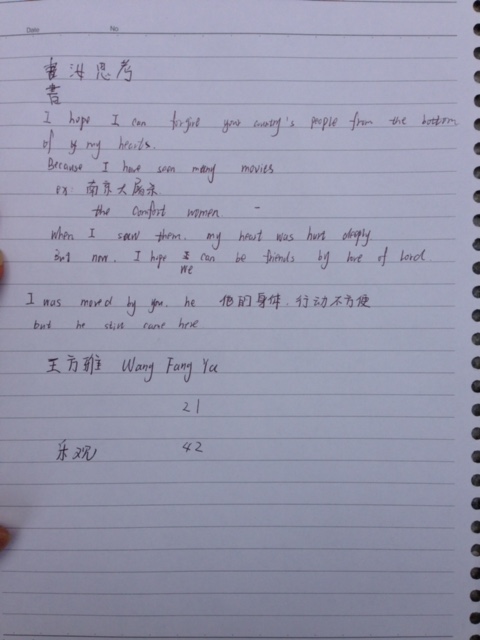 Date No
思考
書
I hope I can forgive your country's people from the bottom
of my hearts.
Because I have seen many movies
ex: 南京大屠杀
the comfort women
when I saw them. my heart was hurt deeply
But now. I hope we can be friends by love of Lord
I was moved by you. he 他的身体. 行动不方便
but he still came here
王方雅 Wang Fang Ya
21
乐观 42